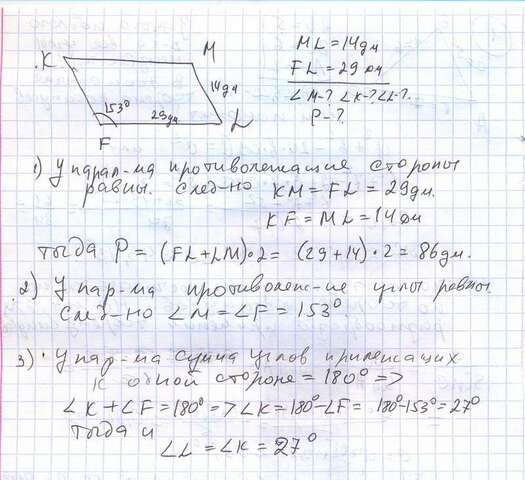 K
M
14дм
153°
29дм
L
F
ML = 14дм
FL = 29 дм
∠M-? ∠K-? ∠L-?
P-?
1) У парал-ма противолежащие стороны
равны. След-но KM = FL = 29дм.
KF = ML = 14дм
тогда P = (FL+LM)·2 = (29+14)·2 = 86дм.
2) У пар-ма противолеж-ие углы равны.
След-но ∠M = ∠F = 153°.
3) У пар-ма сумма углов прилежащих
к одной стороне = 180° =>
∠K + ∠F = 180° => ∠K = 180°-∠F = 180°-153° = 27°
тогда и
∠L = ∠K = 27°